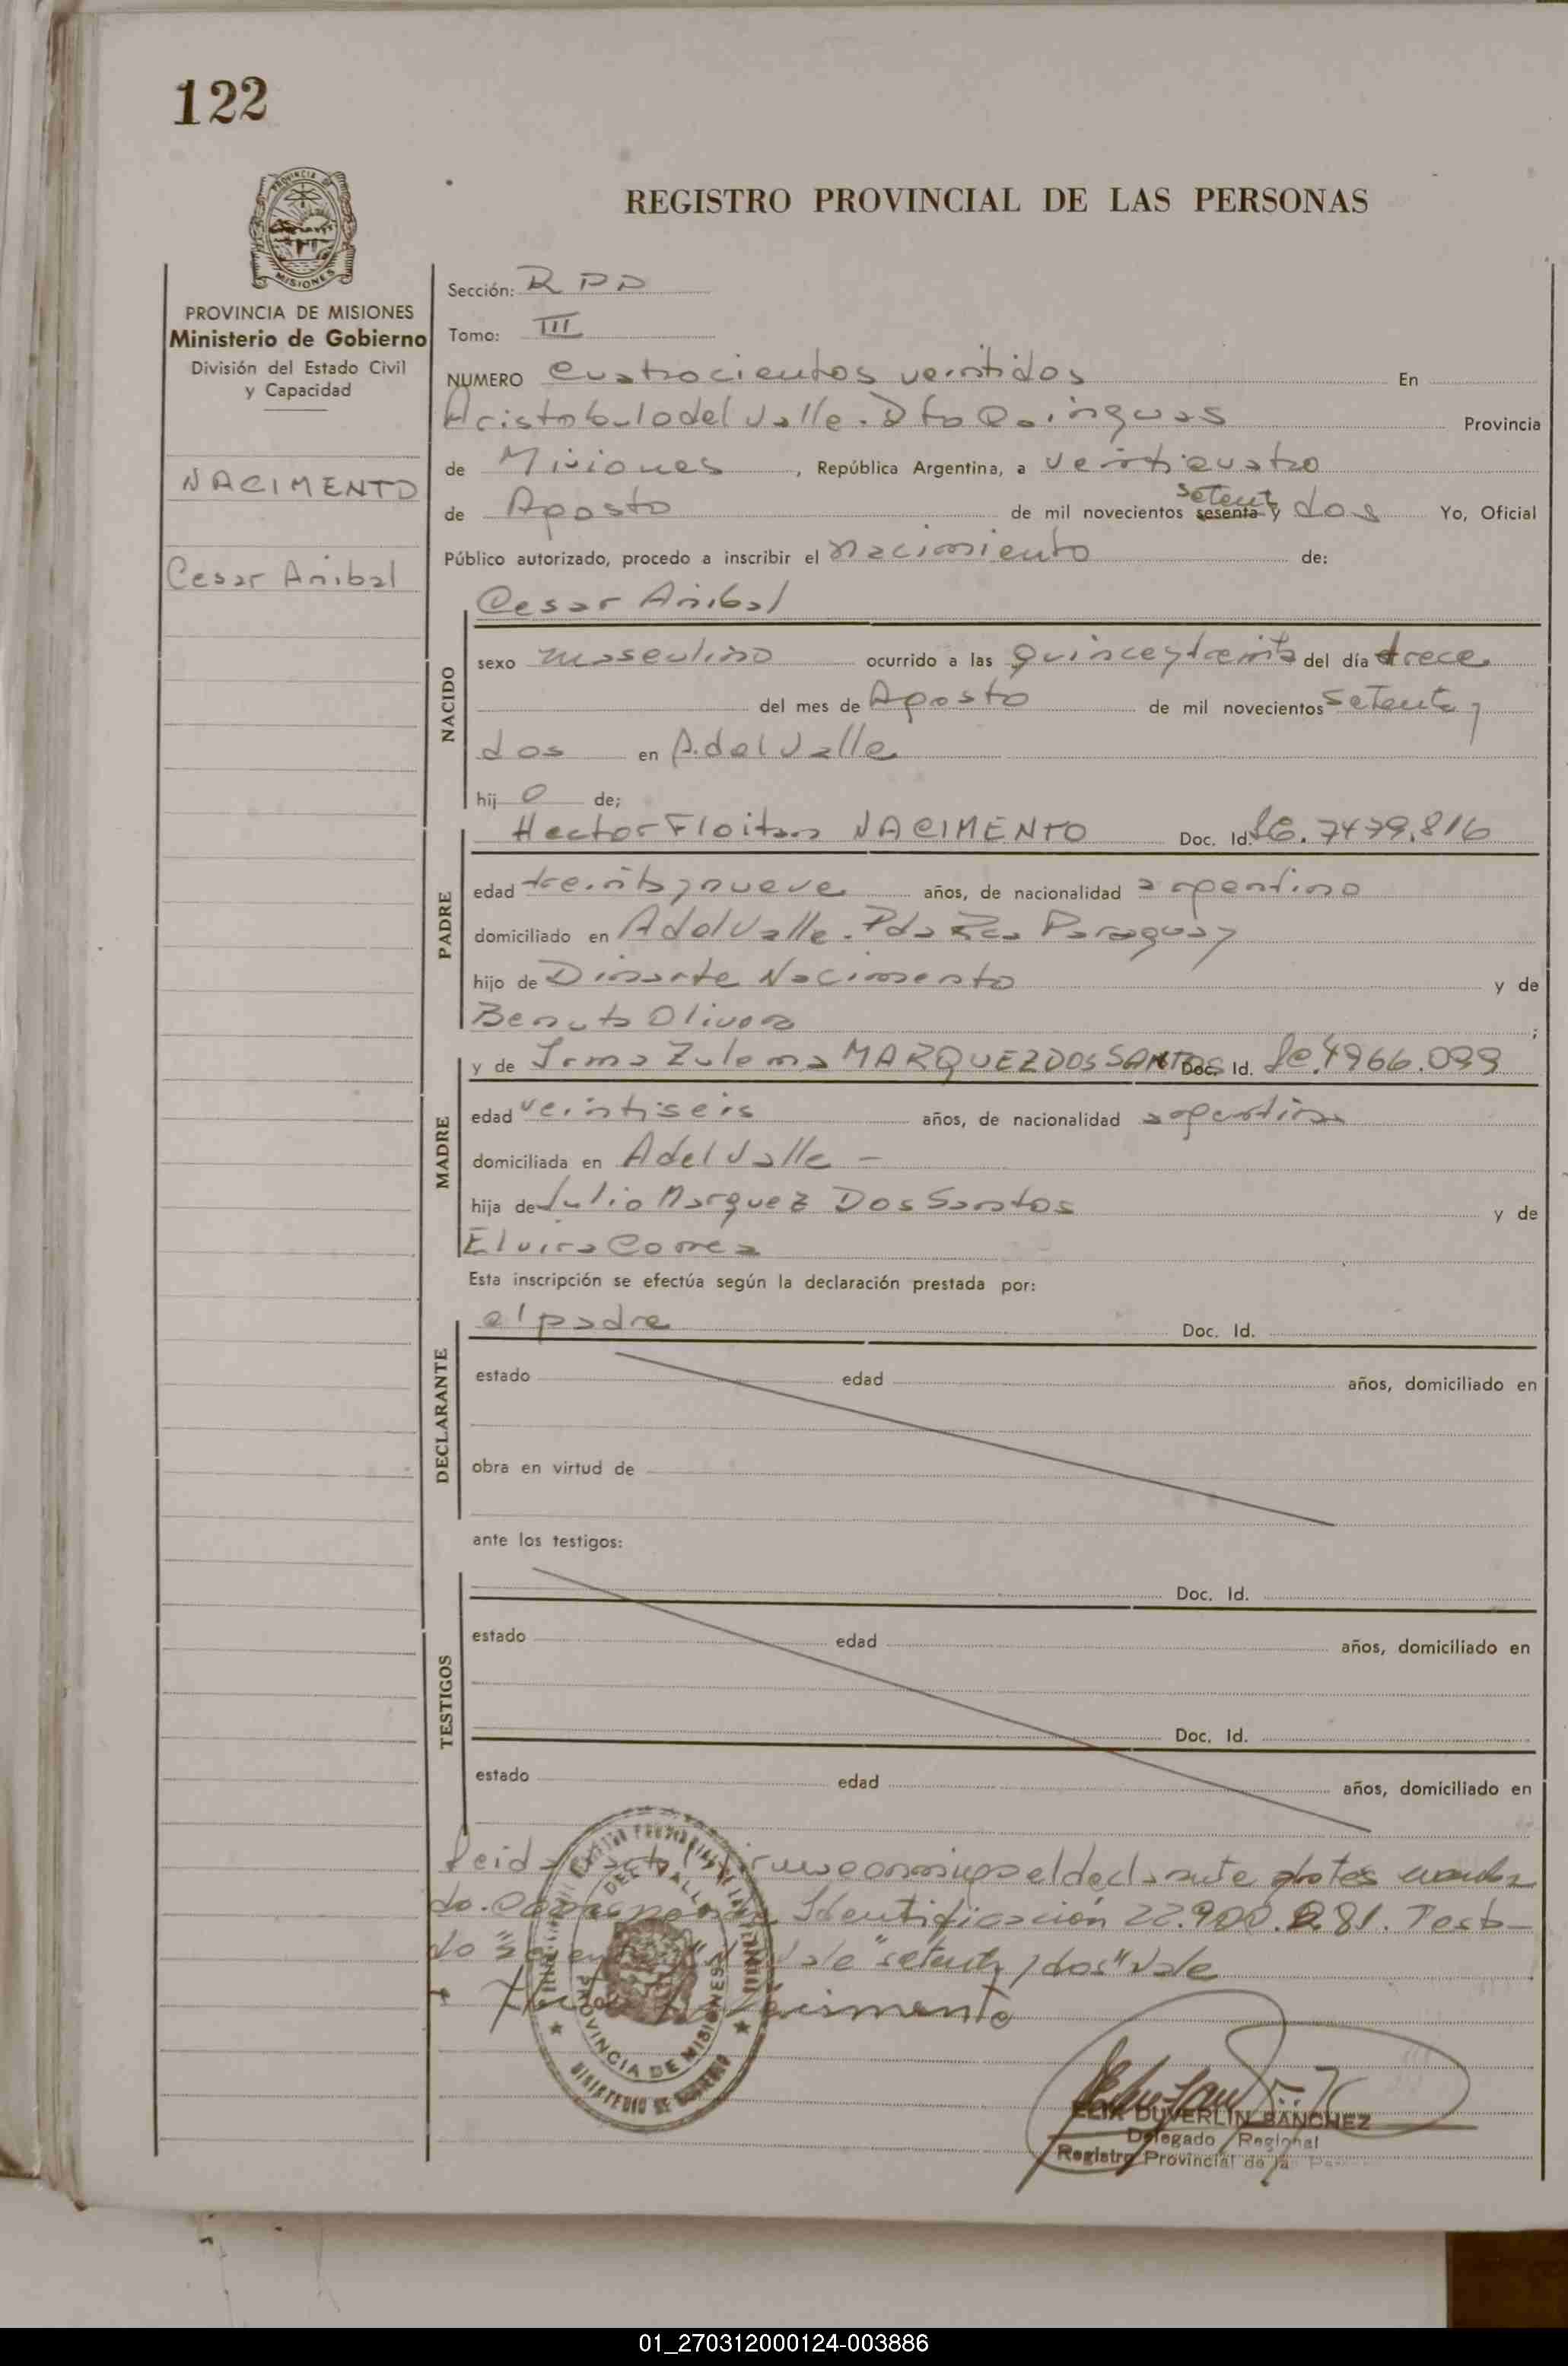 122
REGISTRO PROVINCIAL DE LAS PERSONAS
PROVINCIA DE MISIONES
Ministerio de Gobierno
División del Estado Civil
y Capacidad
NACIMENTO
Cesar Anibal
Sección: R P P
Tomo: III
NUMERO cuatrocientos veintidos En
Aristobulo del Valle. Dto Cainguas Provincia
de Misiones, República Argentina, a veinticuatro
de Agosto de mil novecientos sesenta y setenta dos Yo, Oficial
Público autorizado, procedo a inscribir el nacimiento de:
Cesar Anibal
NACIDO
sexo masculino ocurrido a las quince y treinta del día trece
del mes de Agosto de mil novecientos setenta y
dos en A. del Valle
hij o de;
PADRE
Hector NACIMENTO Doc. Id. 7479.816
edad treinta y nueve años, de nacionalidad argentino
domiciliado en A del Valle. Pda Paraguay
hijo de Dinarte Nacimento y de
Benuta Olivera;
MADRE
y de Irma Zulema MARQUEZ DOS SANTOS Doc. Id. 4966.099
edad veintiseis años, de nacionalidad argentina
domiciliada en A del Valle -
hija de Julio Marquez Dos Santos y de
Elvira Correa
Esta inscripción se efectúa según la declaración prestada por:
DECLARANTE
el padre Doc. Id.
estado edad años, domiciliado en
obra en virtud de
ante los testigos:
TESTIGOS
Doc. Id.
estado edad años, domiciliado en
Doc. Id.
estado edad años, domiciliado en
Leida el acta firma conmigo el declarante
do. Identificación Testa-
do vale "setenta y dos" vale
Nacimento
DEL VALLE
PROVINCIA DE MISIONES
MINISTERIO DE GOBIERNO
DUVERLIN SANCHEZ
Delegado Regional
Registro Provincial de la
01_270312000124-003886